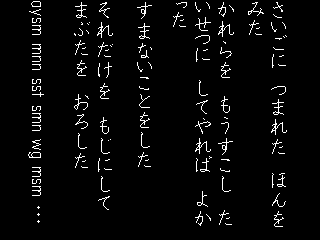 さいごに　つまれた　ほんを
みた
かれらを　もうすこし　た
いせつに　してやれば　よか
った
すまないことをした
それだけを　もじにして
まぶたを　おろした
aysm mnn sst smn wg msm …